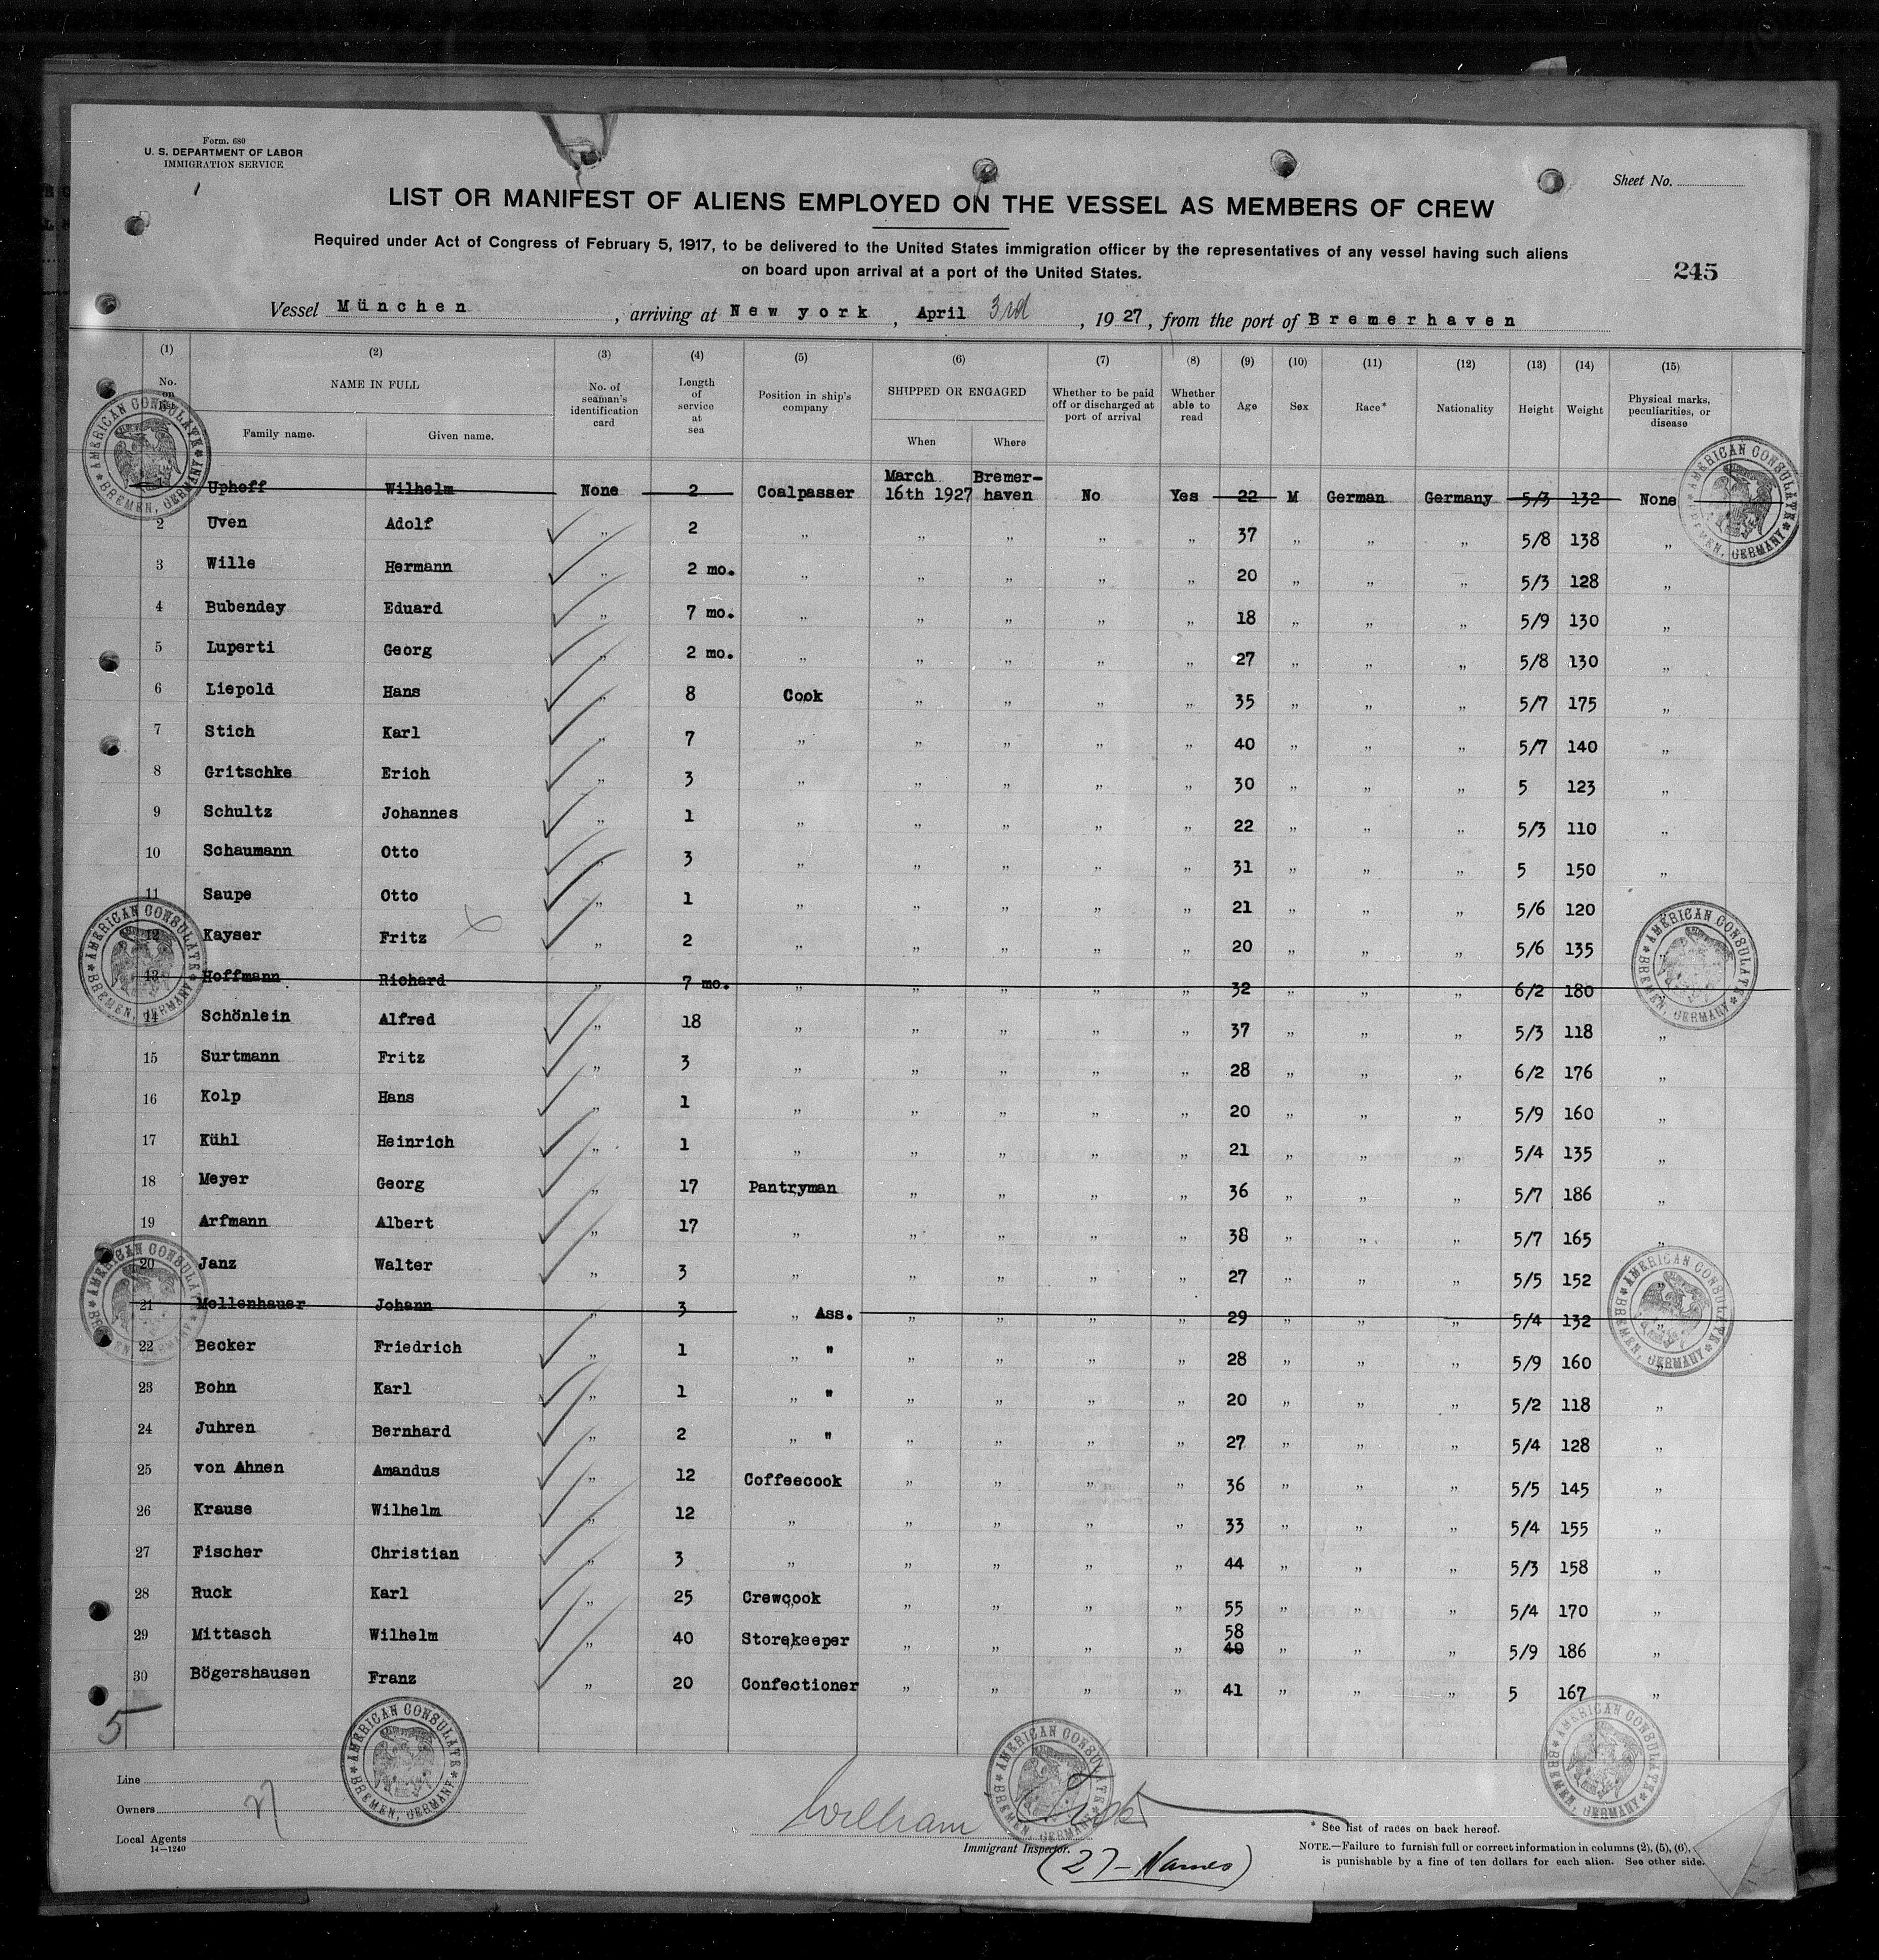 Form. 680
U. S. DEPARTMENT OF LABOR
IMMIGRATION SERVICE
Sheet No.
LIST OR MANIFEST OF ALIENS EMPLOYED ON THE VESSEL AS MEMBERS OF CREW
Required under Act of Congress of February 5, 1917, to be delivered to the United States immigration officer by the representatives of any vessel having such aliens
on board upon arrival at a port of the United States.
245
Vessel München, arriving at New york, April 3rd, 1927, from the port of Bremerhaven
(1) (2) (3) (4) (5) (6) (7) (8) (9) (10) (11) (12) (13) (14) (15)
No. on list NAME IN FULL Family name. Given name. No. of seaman's identification card Length of service at sea Position in ship's company SHIPPED OR ENGAGED When Where Whether to be paid off or discharged at port of arrival Whether able to read Age Sex Race* Nationality Height Weight Physical marks, peculiarities, or disease
Uphoff Wilhelm None 2 Coalpasser March 16th 1927 Bremer-haven No Yes 22 M German Germany 5/3 132 None
2 Uven Adolf „ 2 „ „ „ „ „ 37 „ „ „ 5/8 138 „
3 Wille Hermann „ 2 mo. „ „ „ „ „ 20 „ „ „ 5/3 128 „
4 Bubendey Eduard „ 7 mo. „ „ „ „ „ 18 „ „ „ 5/9 130 „
5 Luperti Georg „ 2 mo. „ „ „ „ „ 27 „ „ „ 5/8 130 „
6 Liepold Hans „ 8 Cook „ „ „ „ 35 „ „ „ 5/7 175 „
7 Stich Karl „ 7 „ „ „ „ „ 40 „ „ „ 5/7 140 „
8 Gritschke Erich „ 3 „ „ „ „ „ 30 „ „ „ 5 123 „
9 Schultz Johannes „ 1 „ „ „ „ „ 22 „ „ „ 5/3 110 „
10 Schaumann Otto „ 3 „ „ „ „ „ 31 „ „ „ 5 150 „
11 Saupe Otto „ 1 „ „ „ „ „ 21 „ „ „ 5/6 120
12 Kayser Fritz „ 2 „ „ „ „ „ 20 „ „ „ 5/6 135
13 Hoffmann Richard „ 7 mo. „ „ „ „ „ 32 „ „ „ 6/2 180
14 Schönlein Alfred „ 18 „ „ „ „ „ 37 „ „ „ 5/3 118 „
15 Surtmann Fritz „ 3 „ „ „ „ „ 28 „ „ „ 6/2 176 „
16 Kolp Hans „ 1 „ „ „ „ „ 20 „ „ „ 5/9 160 „
17 Kühl Heinrich „ 1 „ „ „ „ „ 21 „ „ „ 5/4 135 „
18 Meyer Georg „ 17 Pantryman „ „ „ „ 36 „ „ „ 5/7 186 „
19 Arfmann Albert „ 17 „ „ „ „ „ 38 „ „ „ 5/7 165 „
20 Janz Walter „ 3 „ „ „ „ „ 27 „ „ „ 5/5 152
21 Mollenhauer Johann „ 3 „ Ass. „ „ „ „ 29 „ „ „ 5/4 132 „
22 Becker Friedrich „ 1 „ " „ „ „ „ 28 „ „ „ 5/9 160 „
23 Bohn Karl „ 1 „ " „ „ „ „ 20 „ „ „ 5/2 118 „
24 Juhren Bernhard „ 2 „ " „ „ „ „ 27 „ „ „ 5/4 128 „
25 von Ahnen Amandus „ 12 Coffeecook „ „ „ „ 36 „ „ „ 5/5 145 „
26 Krause Wilhelm „ 12 „ „ „ „ „ 33 „ „ „ 5/4 155 „
27 Fischer Christian „ 3 „ „ „ „ „ 44 „ „ „ 5/3 158 „
28 Ruck Karl „ 25 Crewcook „ „ „ „ 55 „ „ „ 5/4 170 „
29 Mittasch Wilhelm „ 40 Storekeeper „ „ „ „ 58 40 „ „ „ 5/9 186 „
30 Bögershausen Franz „ 20 Confectioner „ „ „ „ 41 „ „ „ 5 167 „
5
AMERICAN CONSULATE BREMEN, GERMANY
AMERICAN CONSULATE BREMEN, GERMANY
AMERICAN CONSULATE BREMEN, GERMANY
AMERICAN CONSULATE BREMEN, GERMANY
AMERICAN CONSULATE BREMEN, GERMANY
AMERICAN CONSULATE BREMEN, GERMANY
AMERICAN CONSULATE BREMEN, GERMANY
AMERICAN CONSULATE BREMEN, GERMANY
AMERICAN CONSULATE BREMEN, GERMANY
Line
Owners
Local Agents
14—1240
William
Immigrant Inspector.
(27—Names)
* See list of races on back hereof.
NOTE.—Failure to furnish full or correct information in columns (2), (5), (6),
is punishable by a fine of ten dollars for each alien. See other side.